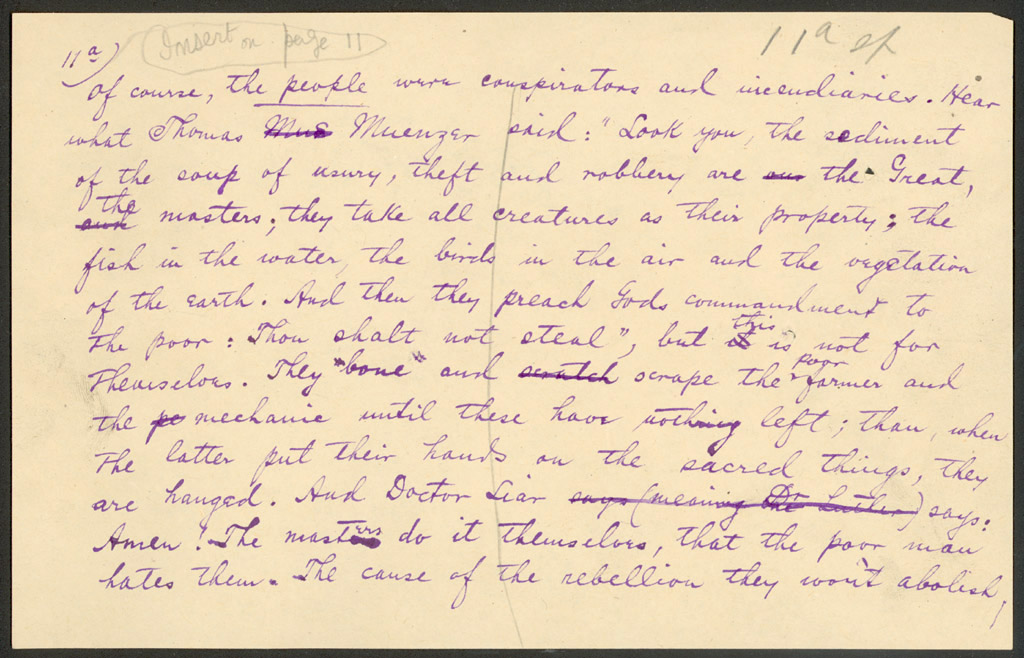 11a)
Insert on page 11
11a sp
Of course, the people were conspirators and incendiaries. Hear
what Thomas Mue Muenzer said: "Look you, the sediment
of the soup of usury, theft and robbery are our the Great,
own the masters; they take all creatures as their property; the
fish in the water, the birds in the air and the vegetation
of the earth. And then they preach Gods commandment to
the poor: Thou shalt not steal", but it this is not for
themselves. They "bone" and scratch scrape the poor farmer and
the po mechanic until these have nothing left; than, when
the latter put their hands on the sacred things, they
are hanged. And Doctor Liar says (meaning Dr Luther) says:
Amen! The masters do it themselves, that the poor man
hates them. The cause of the rebellion they won't abolish,